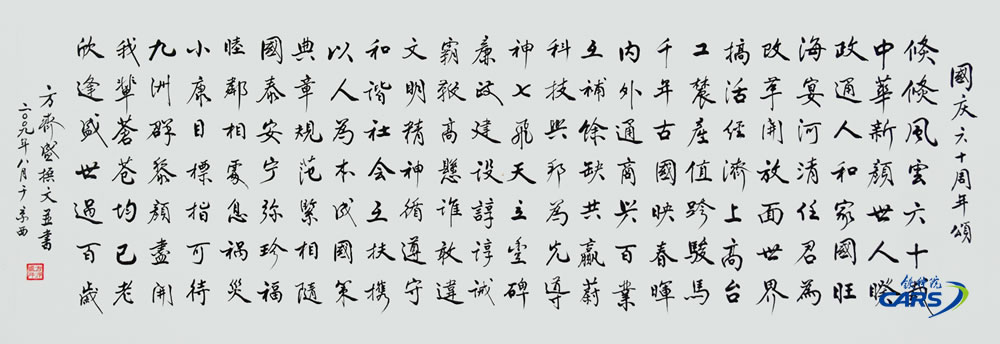 國庆六十周年頌
倏倏風雲六十載
中華新顏世人睽
政通人和家國旺
海宴河清任君為
改革開放面世界
搞活经濟上高台
工農產值跨駿馬
千年古國映春暉
内外通商兴百業
互補餘缺共贏蔚
科技兴邦為先導
神七飛天立豐碑
廉政建設諄諄诫
霸鞭高懸誰敢違
文明精神循遵守
和谐社会互扶携
以人為本成國策
典章規范緊相隨
國泰安宁弥珍福
睦鄰相處息祸災
小康目標指可待
九洲群黎顏盡開
我輩苍苍均已老
欣逢盛世過百歲
方齐盛撰文並書
二〇〇九年八月于京西
铁科院
CARS